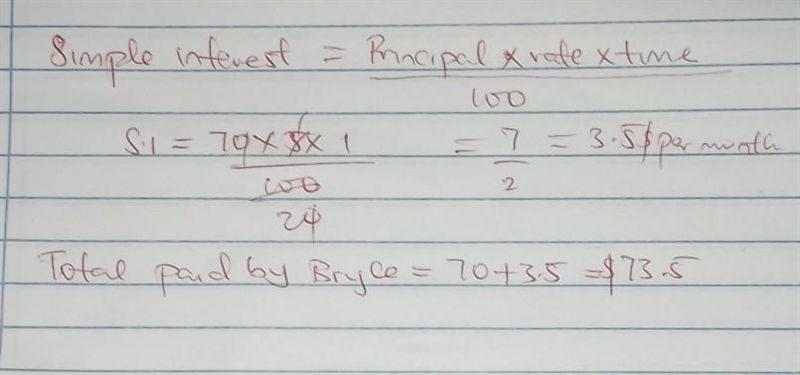 Simple interest = Principal x rate x time
100
S.I = 70 x 5 x 1 = 7 = 3.5$ per month
100 2
20
Total paid by Bryce = 70+3.5 = $73.5